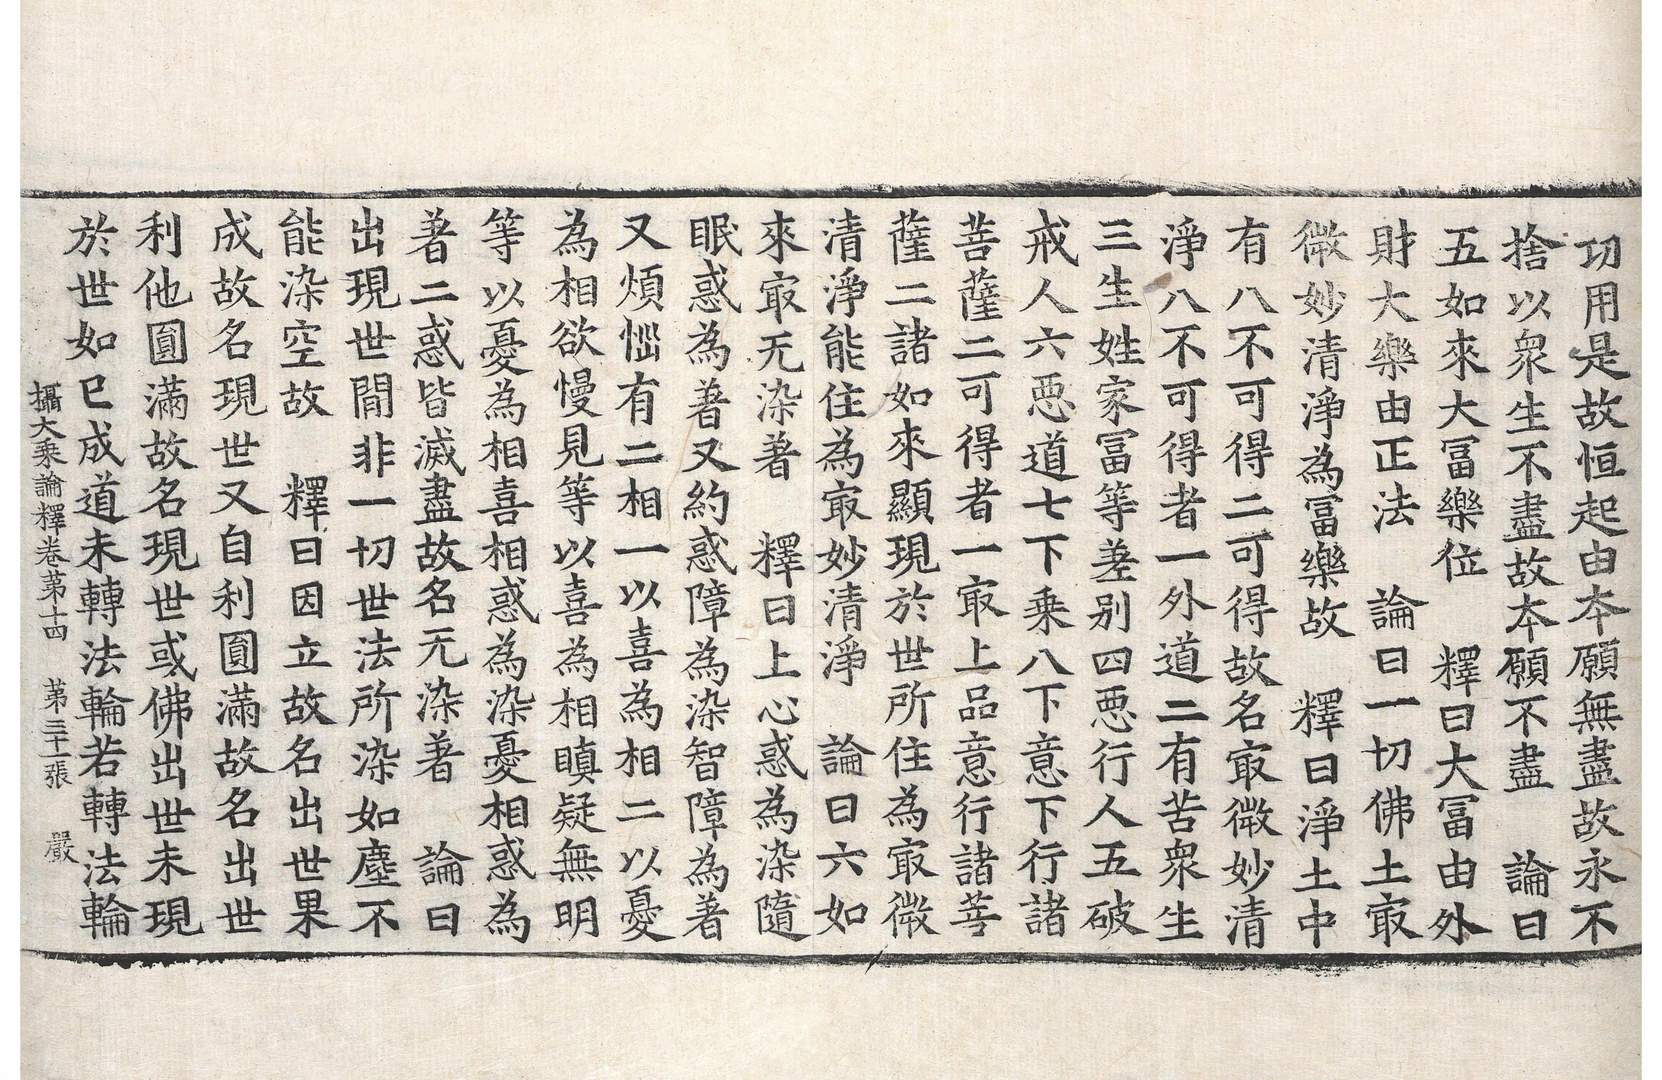 功用是故恒起由本願無盡故永不
捨以衆生不盡故本願不盡　論曰
五如來大冨樂位　釋曰大冨由外
財大樂由正法　論曰一切佛土㝡
微妙清淨為冨樂故　釋曰淨土中
有八不可得二可得故名㝡微妙清
淨八不可得者一外道二有苦衆生
三生姓家冨等差别四惡行人五破
戒人六惡道七下乘八下意下行諸
菩薩二可得者一㝡上品意行諸菩
薩二諸如來顯現於世所住為㝡微
清淨能住為㝡妙清淨　論曰六如
來㝡无染著　釋曰上心惑為染隨
眠惑為著又約惑障為染智障為著
又煩惱有二相一以喜為相二以憂
為相欲慢見等以喜為相瞋疑無明
等以憂為相喜相惑為染憂相惑為
著二惑皆滅盡故名无染著　論曰
出現世間非一切世法所染如塵不
能染空故　釋曰因立故名出世果
成故名現世又自利圓滿故名出世
利他圓滿故名現世或佛出世未現
於世如已成道未轉法輪若轉法輪
攝大乘論釋卷第十四　第三十一張　嚴